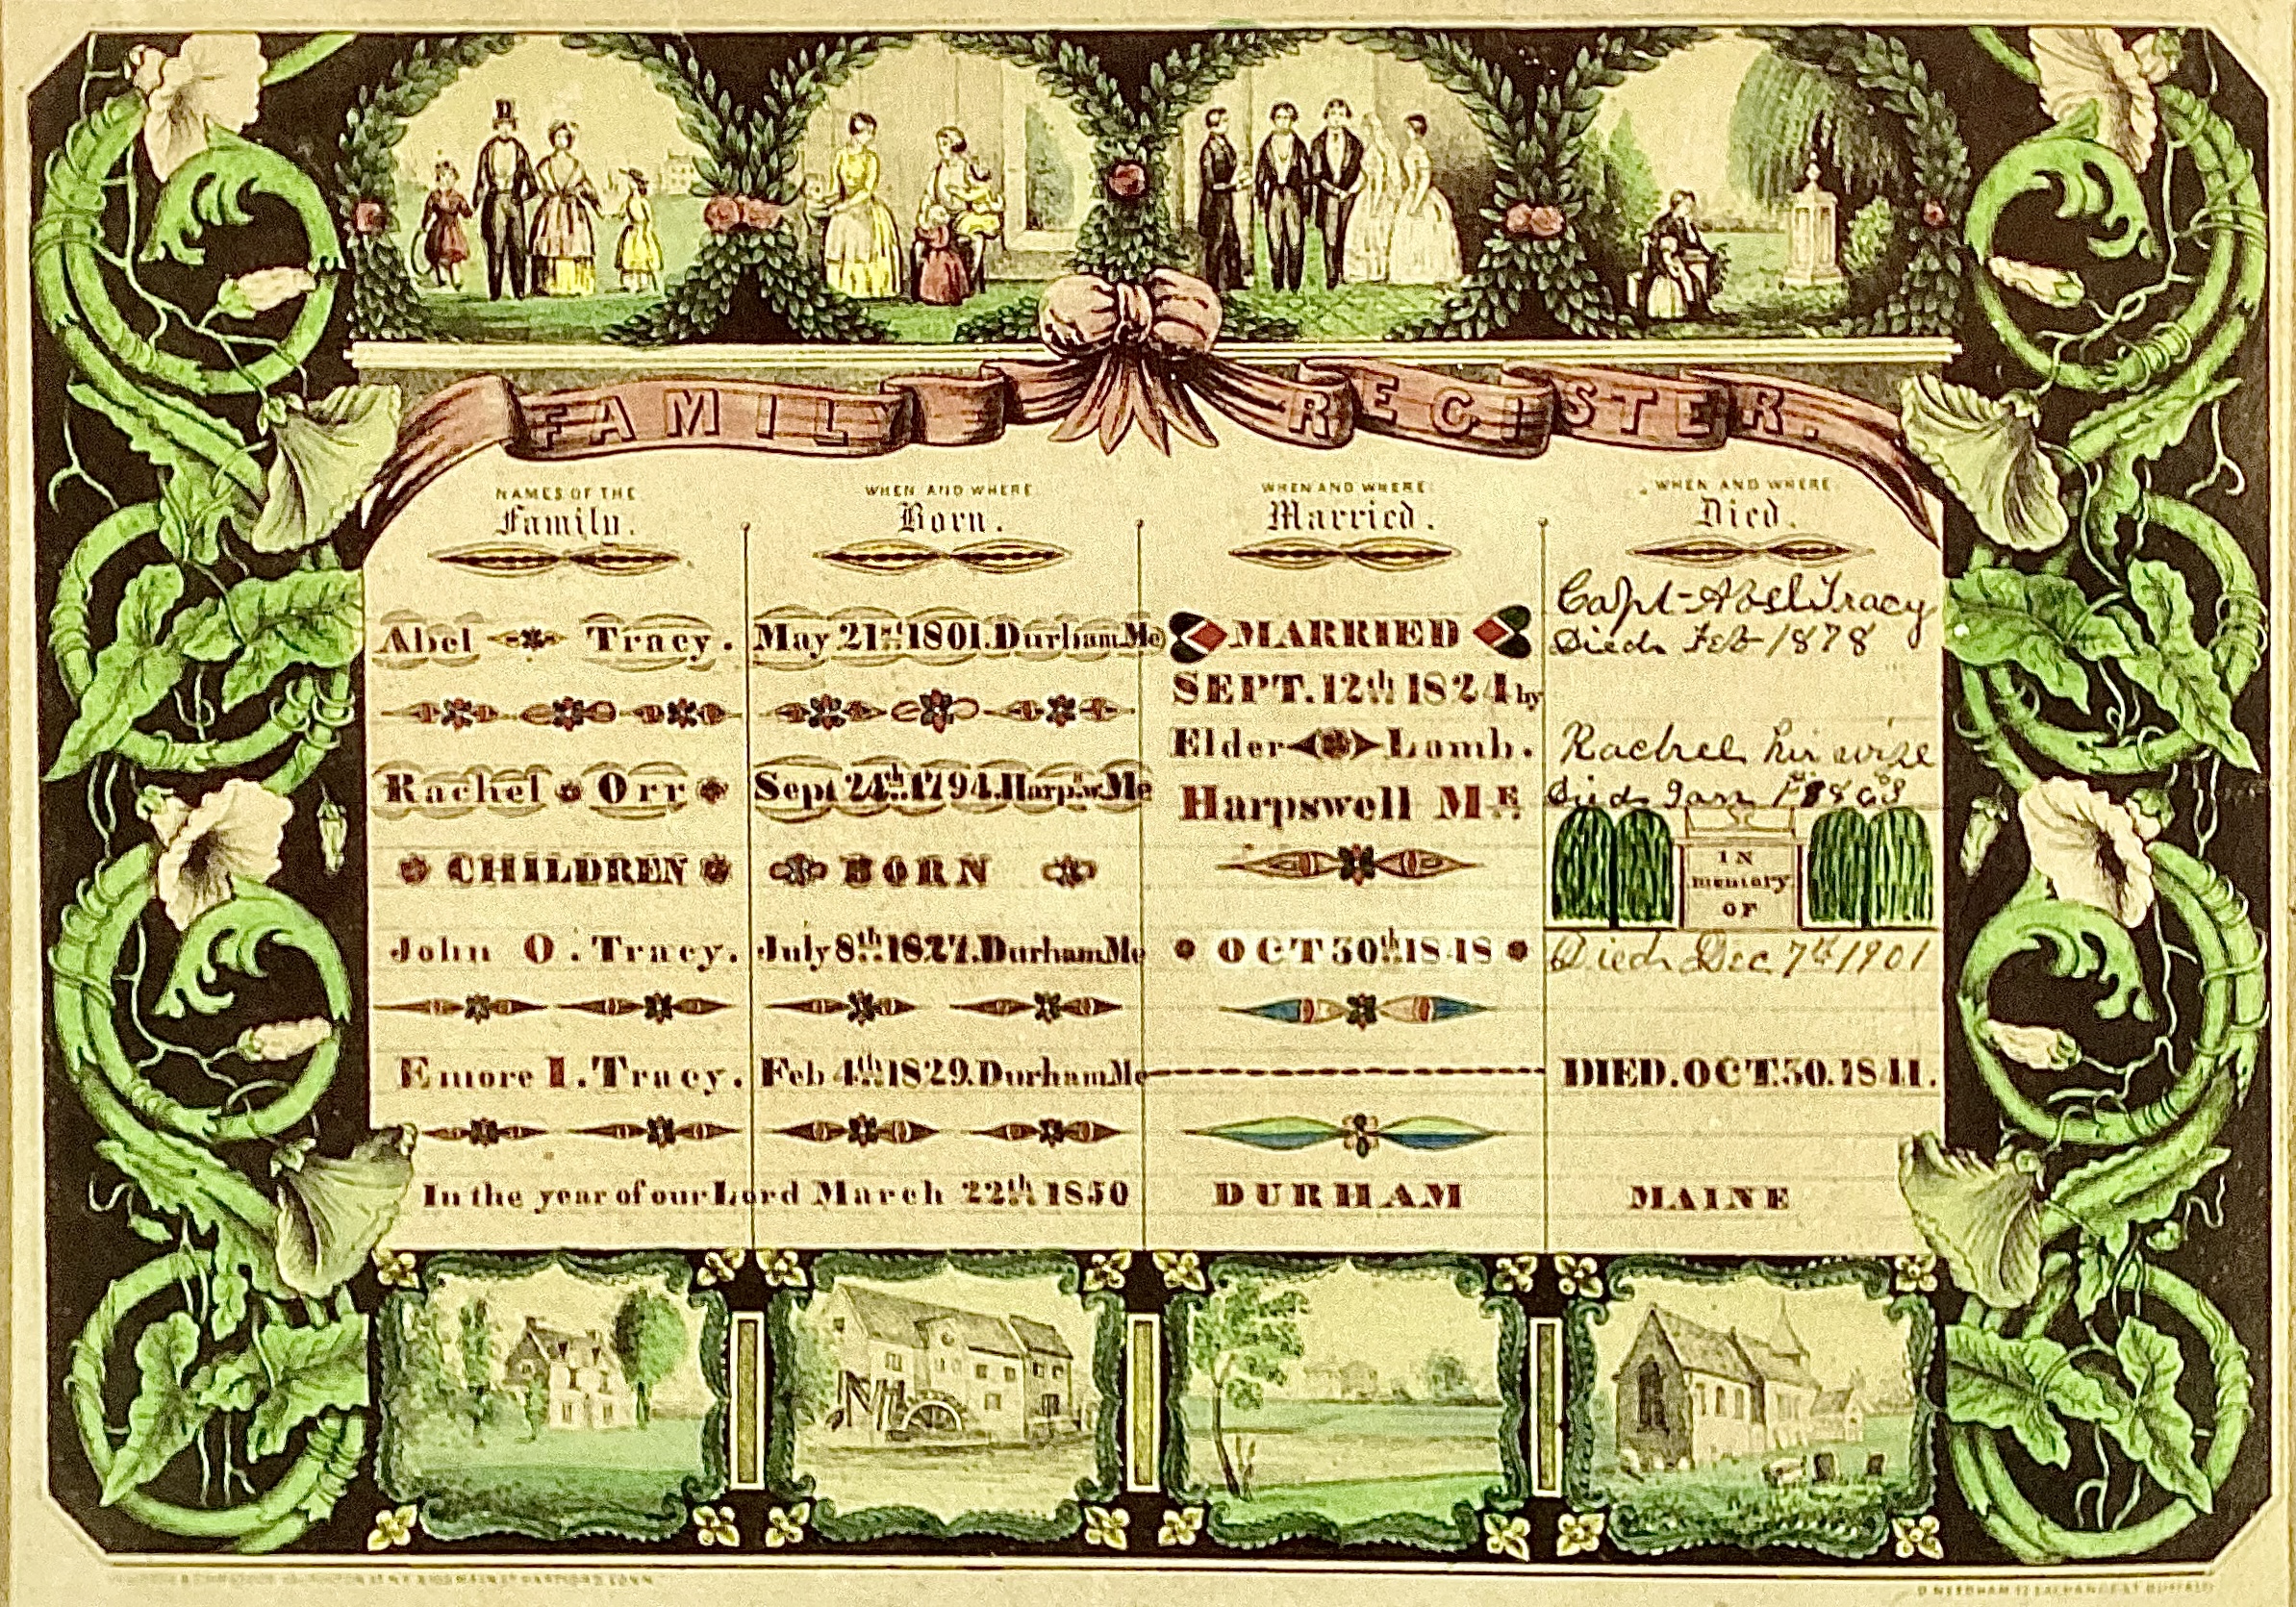 FAMILY REGISTER.
NAMES OF THE Family.
WHEN AND WHERE Born.
WHEN AND WHERE Married.
WHEN AND WHERE Died.
Abel Tracy. May 21st 1801. Durham Me
MARRIED
Capt Abel Tracy
Died Feb 1878
SEPT. 12th 1824 by
Elder Lamb.
Harpswell ME
Rachel Orr Sept 24th 1794. Harpsw. Me
Rachel his wife
Died Jan
CHILDREN BORN
IN
memory
OF
John O. Tracy. July 8th 1827. Durham Me
OCT 30th 1848
Died Dec 7th 1901
Emore I. Tracy. Feb 4th 1829. Durham Me
DIED. OCT. 30. 1841.
In the year of our Lord March 22th 1850
DURHAM MAINE
D. NEEDHAM 12 EXCHANGE ST BUFFALO